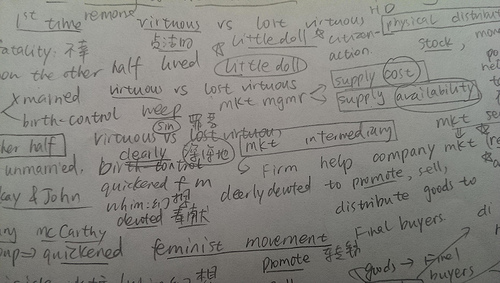 1st time remone virtuous vs lost virtuous HO physical distribu
贞洁的 ☆ little doll ☆ citizen-action stock, mon
fatality: 不幸
on the other half lived little doll
supply cost
virtuous vs lost virtuous mkt mgmr supply availability
x married
birth-control weep
sin 罪恶
virtuous vs lost virtuous mkt intermediary mkt se
her half clearly
unmarried, birth control firm help company mkt
kay & John quickened f m clearly devoted to promote, sell,
whim: 幻想 distribute goods to
devoted 奉献 Final buyers. di
ny McCarthy
oup → quickened feminist movement
promote goods → Final buyers
想